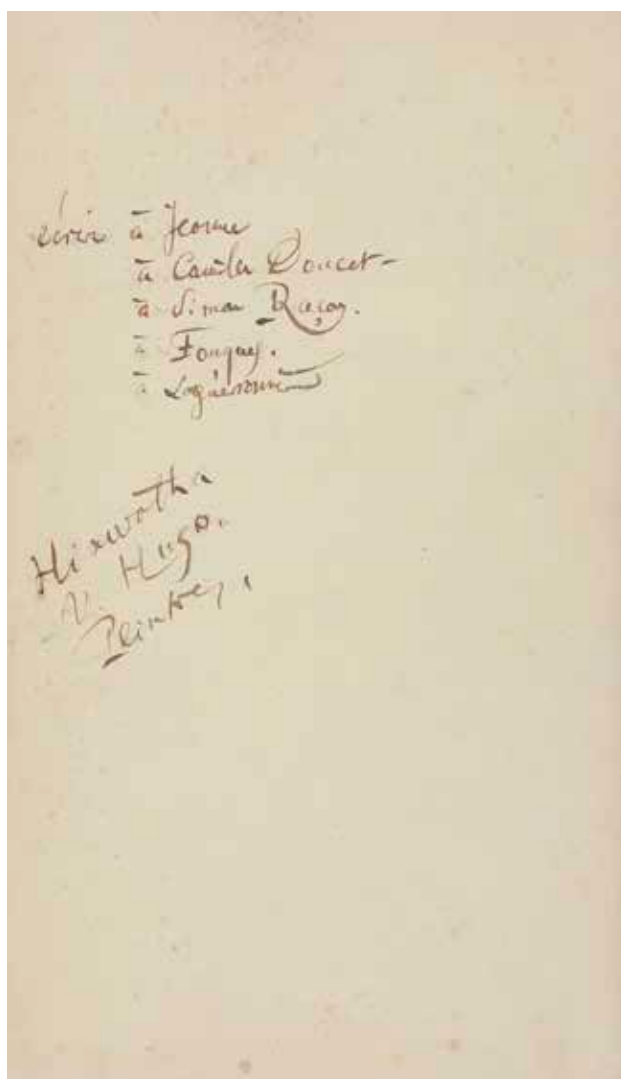 écrire à Jeanne
à Camille Doucet -
à Simon Raçon.
à Fouquey.
à Laguéronnière
Hiawatha
V. Hugo.
Peintres.